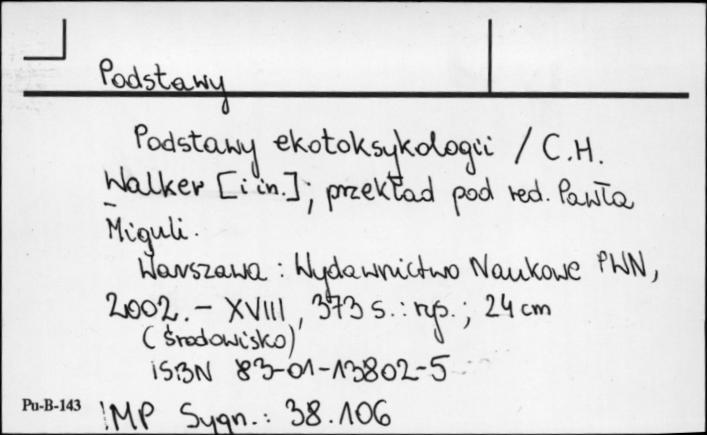 Podstawy
Podstawy ekotoksykologii / C.H.
Walker [i in.]; przekład pod red. Pawła
Miguli.
Warszawa : Wydawnictwo Naukowe PWN,
2002. – XVIII, 373 s. : rys. ; 24 cm
(Środowisko)
ISBN 83-01-13802-5
Pu-B-143 IMP Sygn.: 38.106